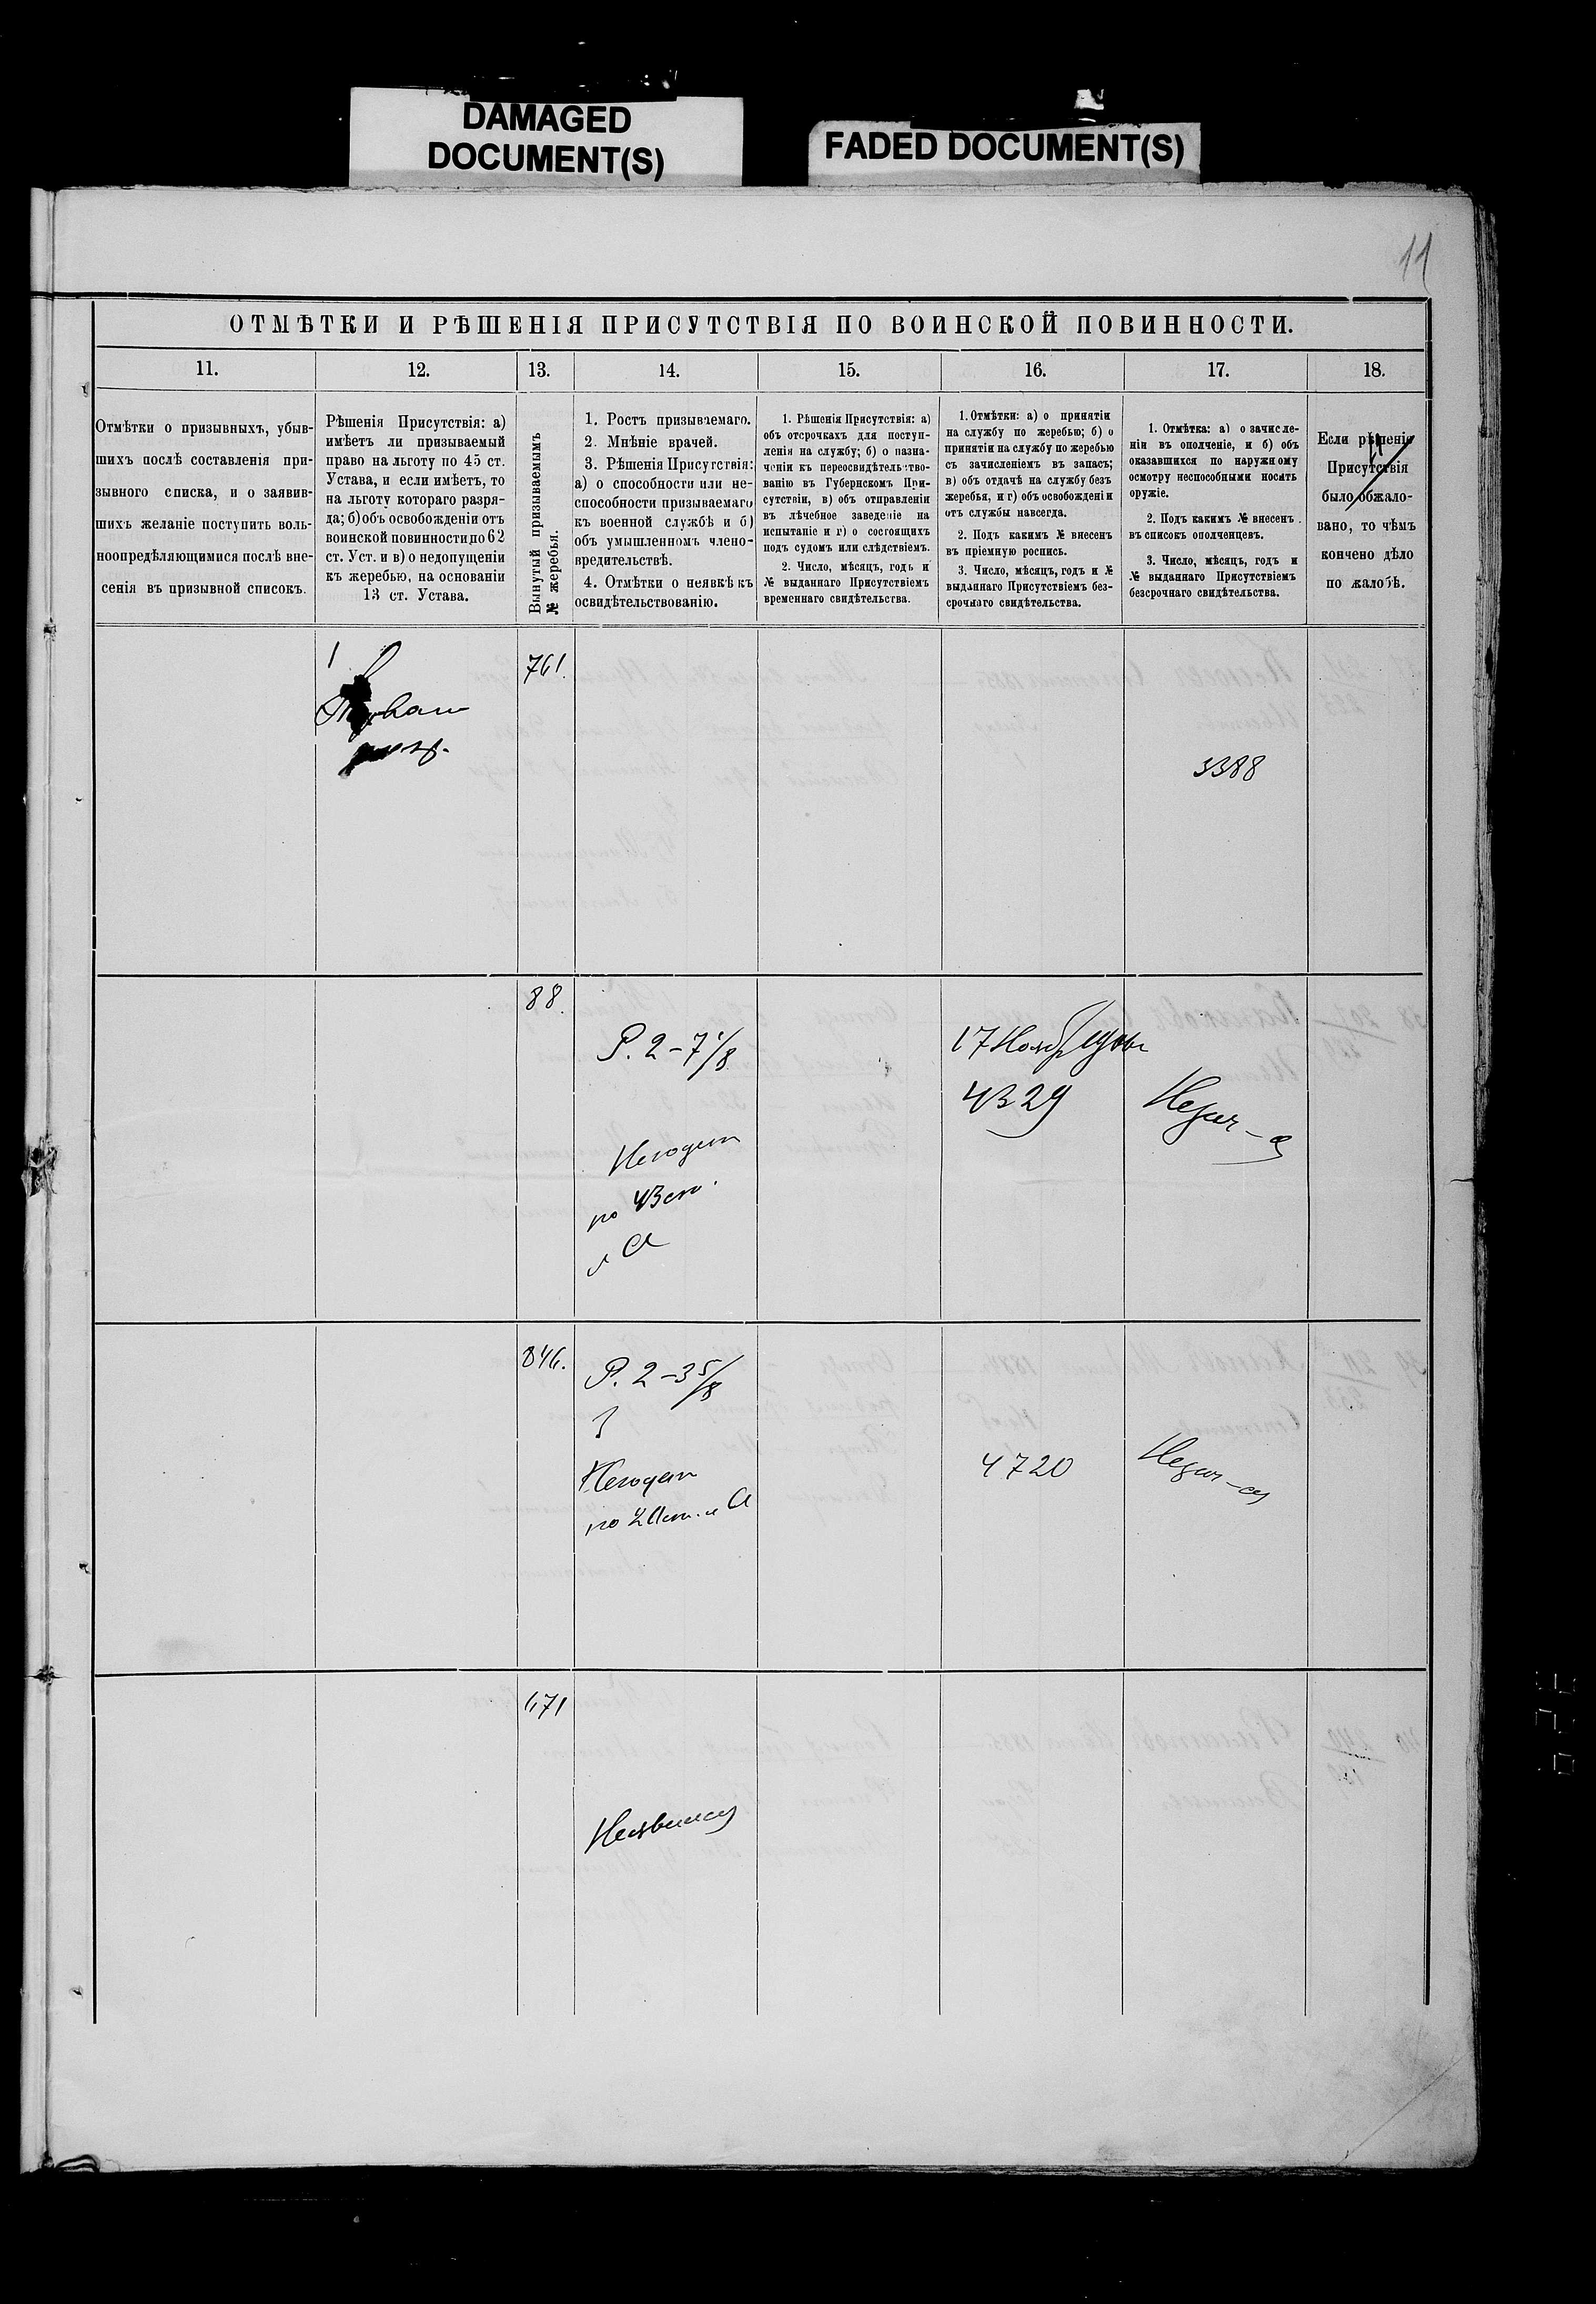 DAMAGED
DOCUMENT(S)
FADED DOCUMENT(S)
11
ОТМѢТКИ И РѢШЕНІЯ ПРИСУТСТВІЯ ПО ВОИНСКОЙ ПОВИННОСТИ.
11.
12.
13.
14.
15.
16.
17.
18.
Отмѣтки о призывныхъ, убыв-
шихъ послѣ составленія при-
зывного списка, и о заявив-
шихъ желаніе поступить воль-
ноопредѣляющимися послѣ вне-
сенія въ призывной списокъ.
Рѣшенія Присутствія: а)
имѣетъ ли призываемый
право на льготу по 45 ст.
Устава, и если имѣетъ, то
на льготу котораго разря-
да; б) объ освобожденіи отъ
воинской повинности по 62
ст. Уст. и в) о недопущеніи
къ жеребью, на основаніи
13 ст. Устава.
Вынутый призываемымъ
№ жеребья.
1. Ростъ призываемаго.
2. Мнѣніе врачей.
3. Рѣшенія Присутствія:
а) о способности или не-
способности призываемаго
къ военной службѣ и б)
объ умышленномъ члено-
вредительствѣ.
4. Отмѣтки о неявкѣ къ
освидѣтельствованію.
1. Рѣшенія Присутствія: а)
объ отсрочкахъ для поступ-
ленія на службу; б) о назна-
ченіи къ переосвидѣтельство-
ванію въ Губернскомъ При-
сутствіи, в) объ отправленіи
въ лѣчебное заведеніе на
испытаніе и г) о состоящихъ
подъ судомъ или слѣдствіемъ.
2. Число, мѣсяцъ, годъ и
№ выданнаго Присутствіемъ
временнаго свидѣтельства.
1. Отмѣтки: а) о принятіи
на службу по жеребью; б) о
принятіи на службу по жеребью
съ зачисленіемъ въ запасъ;
в) объ отдачѣ на службу безъ
жеребья, и г) объ освобожденіи
отъ службы навсегда.
2. Подъ какимъ № внесенъ
въ пріемную роспись.
3. Число, мѣсяцъ, годъ и №
выданнаго Присутствіемъ без-
срочнаго свидѣтельства.
1. Отмѣтка: а) о зачисле-
ніи въ ополченіе, и б) объ
оказавшихся по наружному
осмотру неспособными носить
оружіе.
2. Подъ какимъ № внесенъ
въ списокъ ополченцевъ.
3. Число, мѣсяцъ, годъ и
№ выданнаго Присутствіемъ
безсрочнаго свидѣтельства.
Если рѣшеніе
Присутствія
было обжало-
вано, то чѣмъ
кончено дѣло
по жалобѣ.
1
761.
3388
88.
Р. 2-7 1/8
17 Нояб
4329
Негоден
по 43 ст.
л А
846.
Р. 2-3 5/8
Негоден
4720
671
Неявился